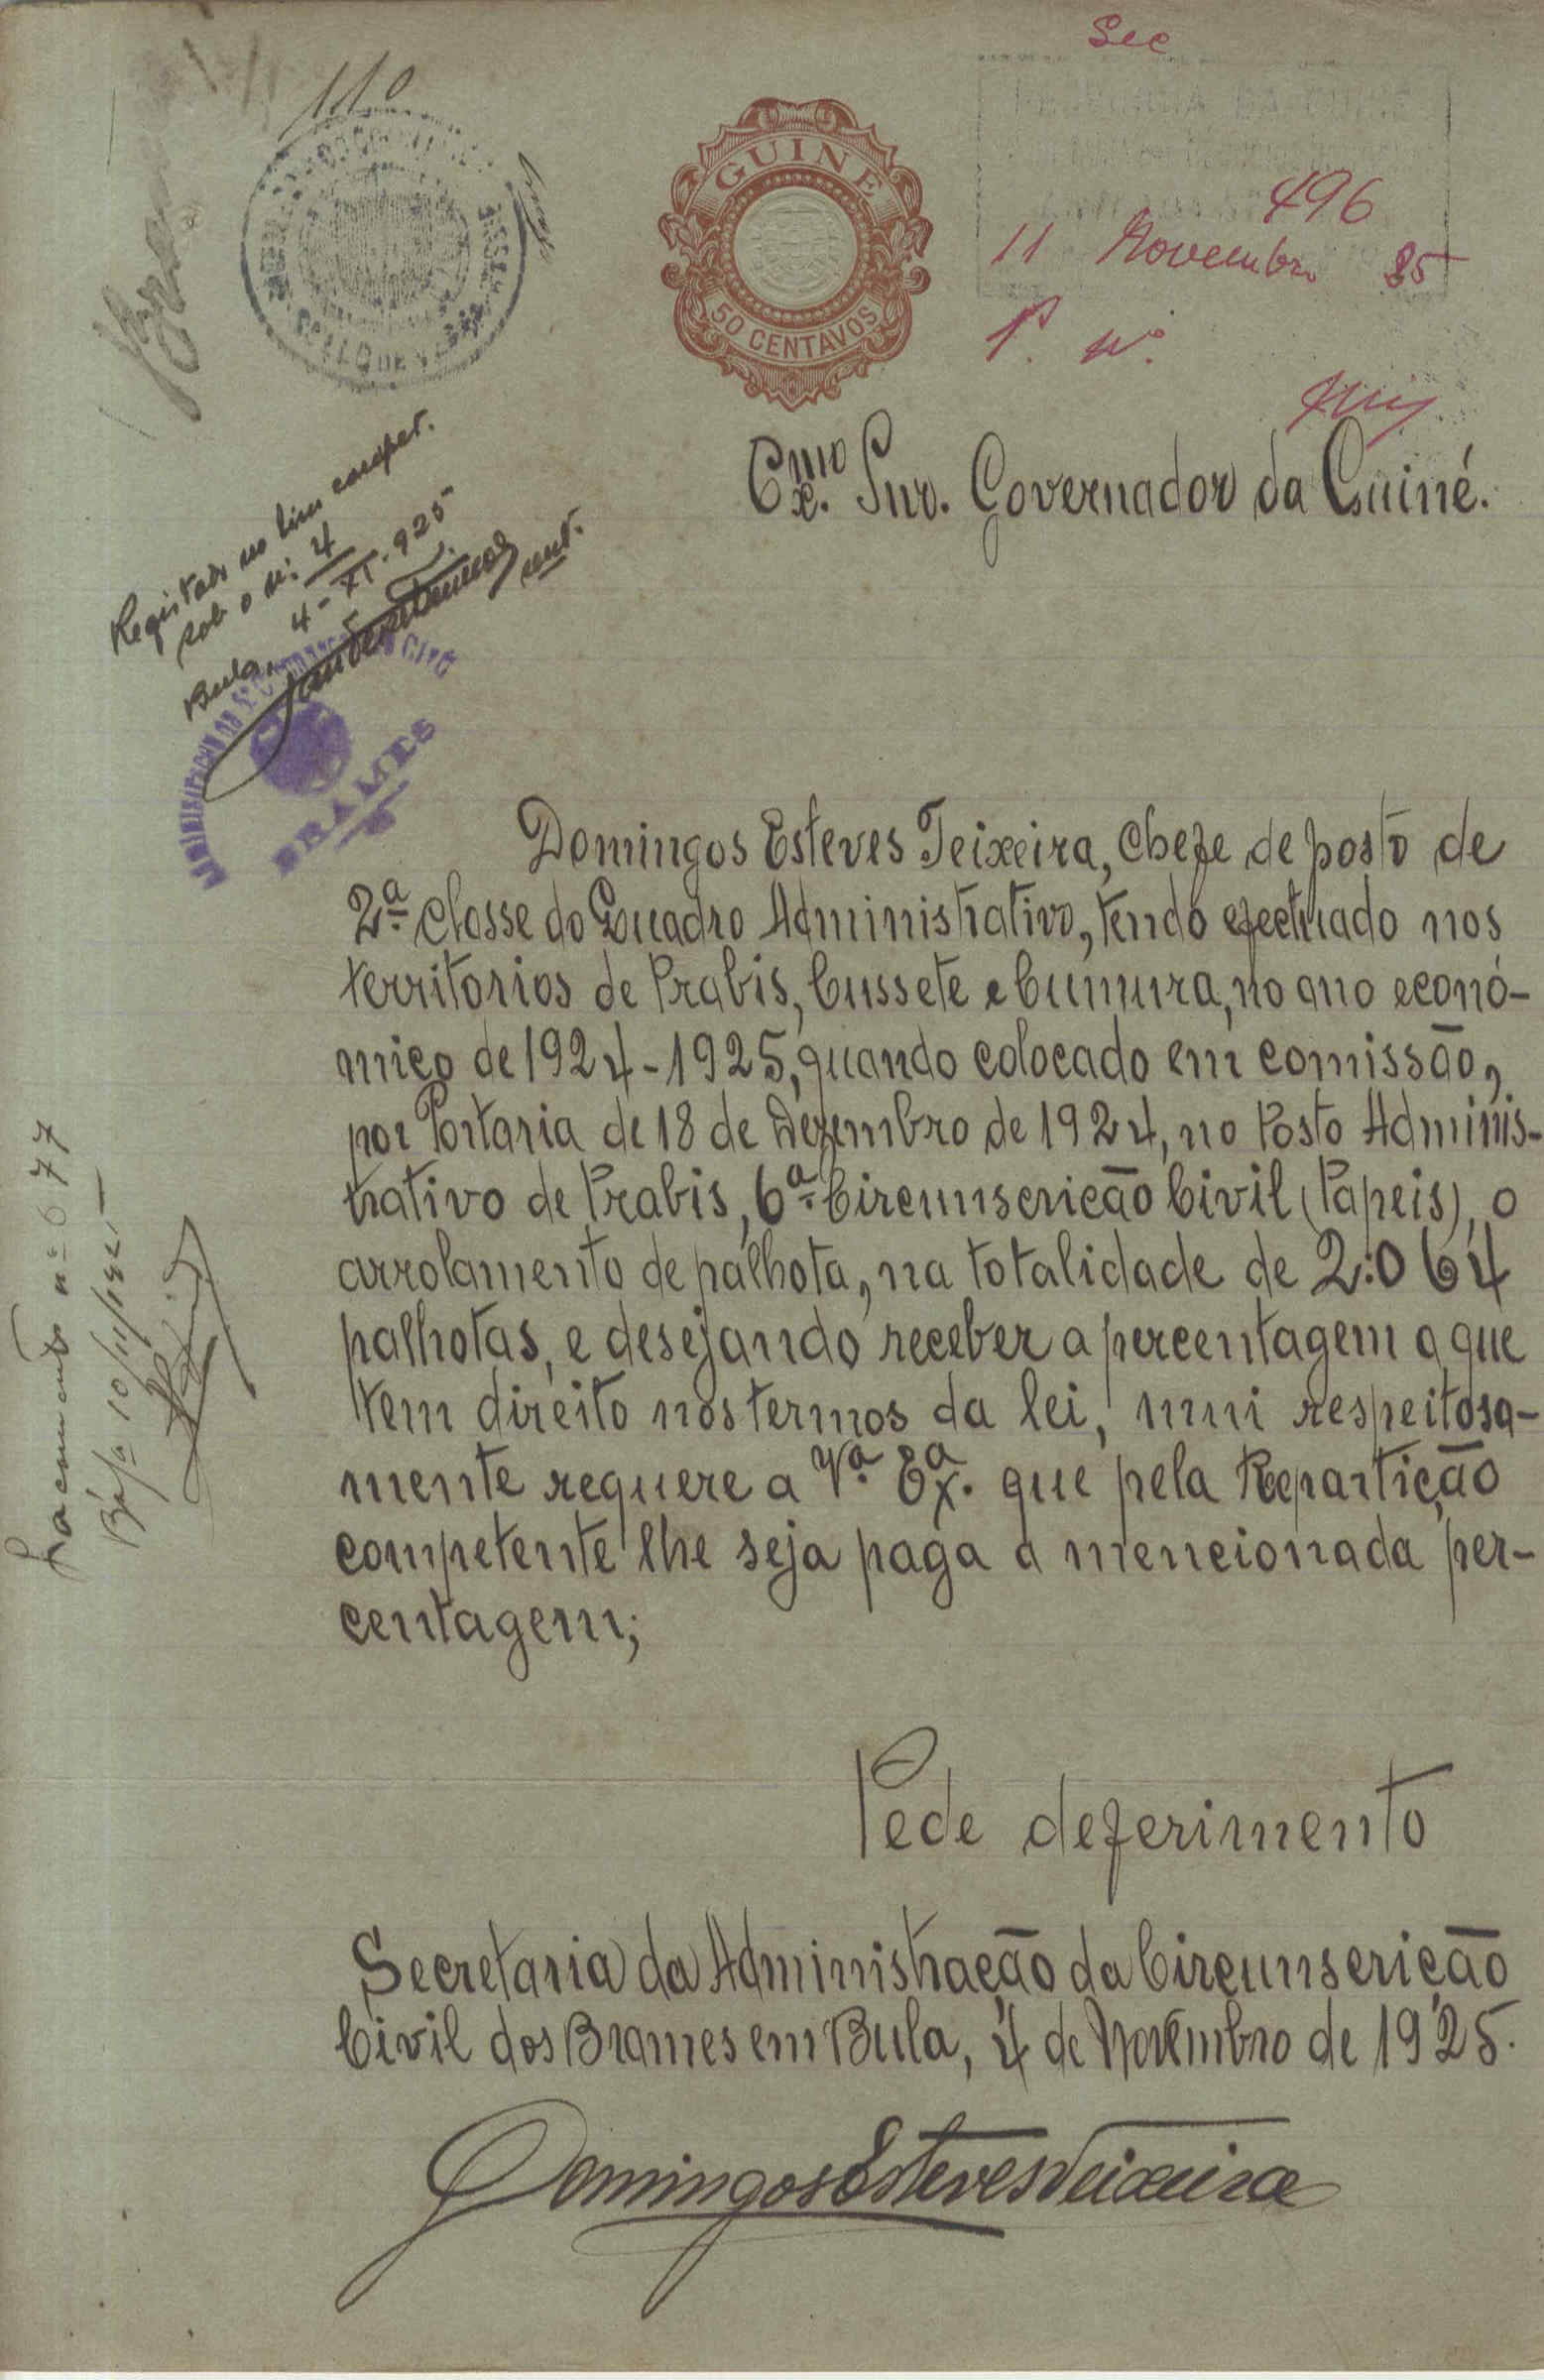 Sec
110
GUINÉ
50 CENTAVOS
496
11 Novembro 25
Exmo. Snr. Governador da Guiné.
Registado no livro compet.
sob o n.º 4
Bula, 4-XI-925
BRAMES
Domingos Esteves Teixeira, Chefe de posto de
2.ª classe do Quadro Administrativo, tendo efectuado nos
territorios de Prabis, Cussete e Cumura, no ano econó-
mico de 1924-1925, quando colocado em comissão,
por Portaria de 18 de Dezembro de 1924, no Posto Adminis-
trativo de Prabis, 6.ª Circunscrição Civil (Papeis), o
arrolamento de palhota, na totalidade de 2:064
palhotas, e desejando receber a percentagem a que
tem direito nos termos da lei, mui respeitosa-
mente requere a V.ª Ex.ª que pela Repartição
competente lhe seja paga a mencionada per-
centagem;
Pede deferimento
Secretaria da Administração da Circunscrição
Civil dos Brames em Bula, 4 de Novembro de 1925.
Domingos Esteves Teixeira
n.º 677
10/11/925